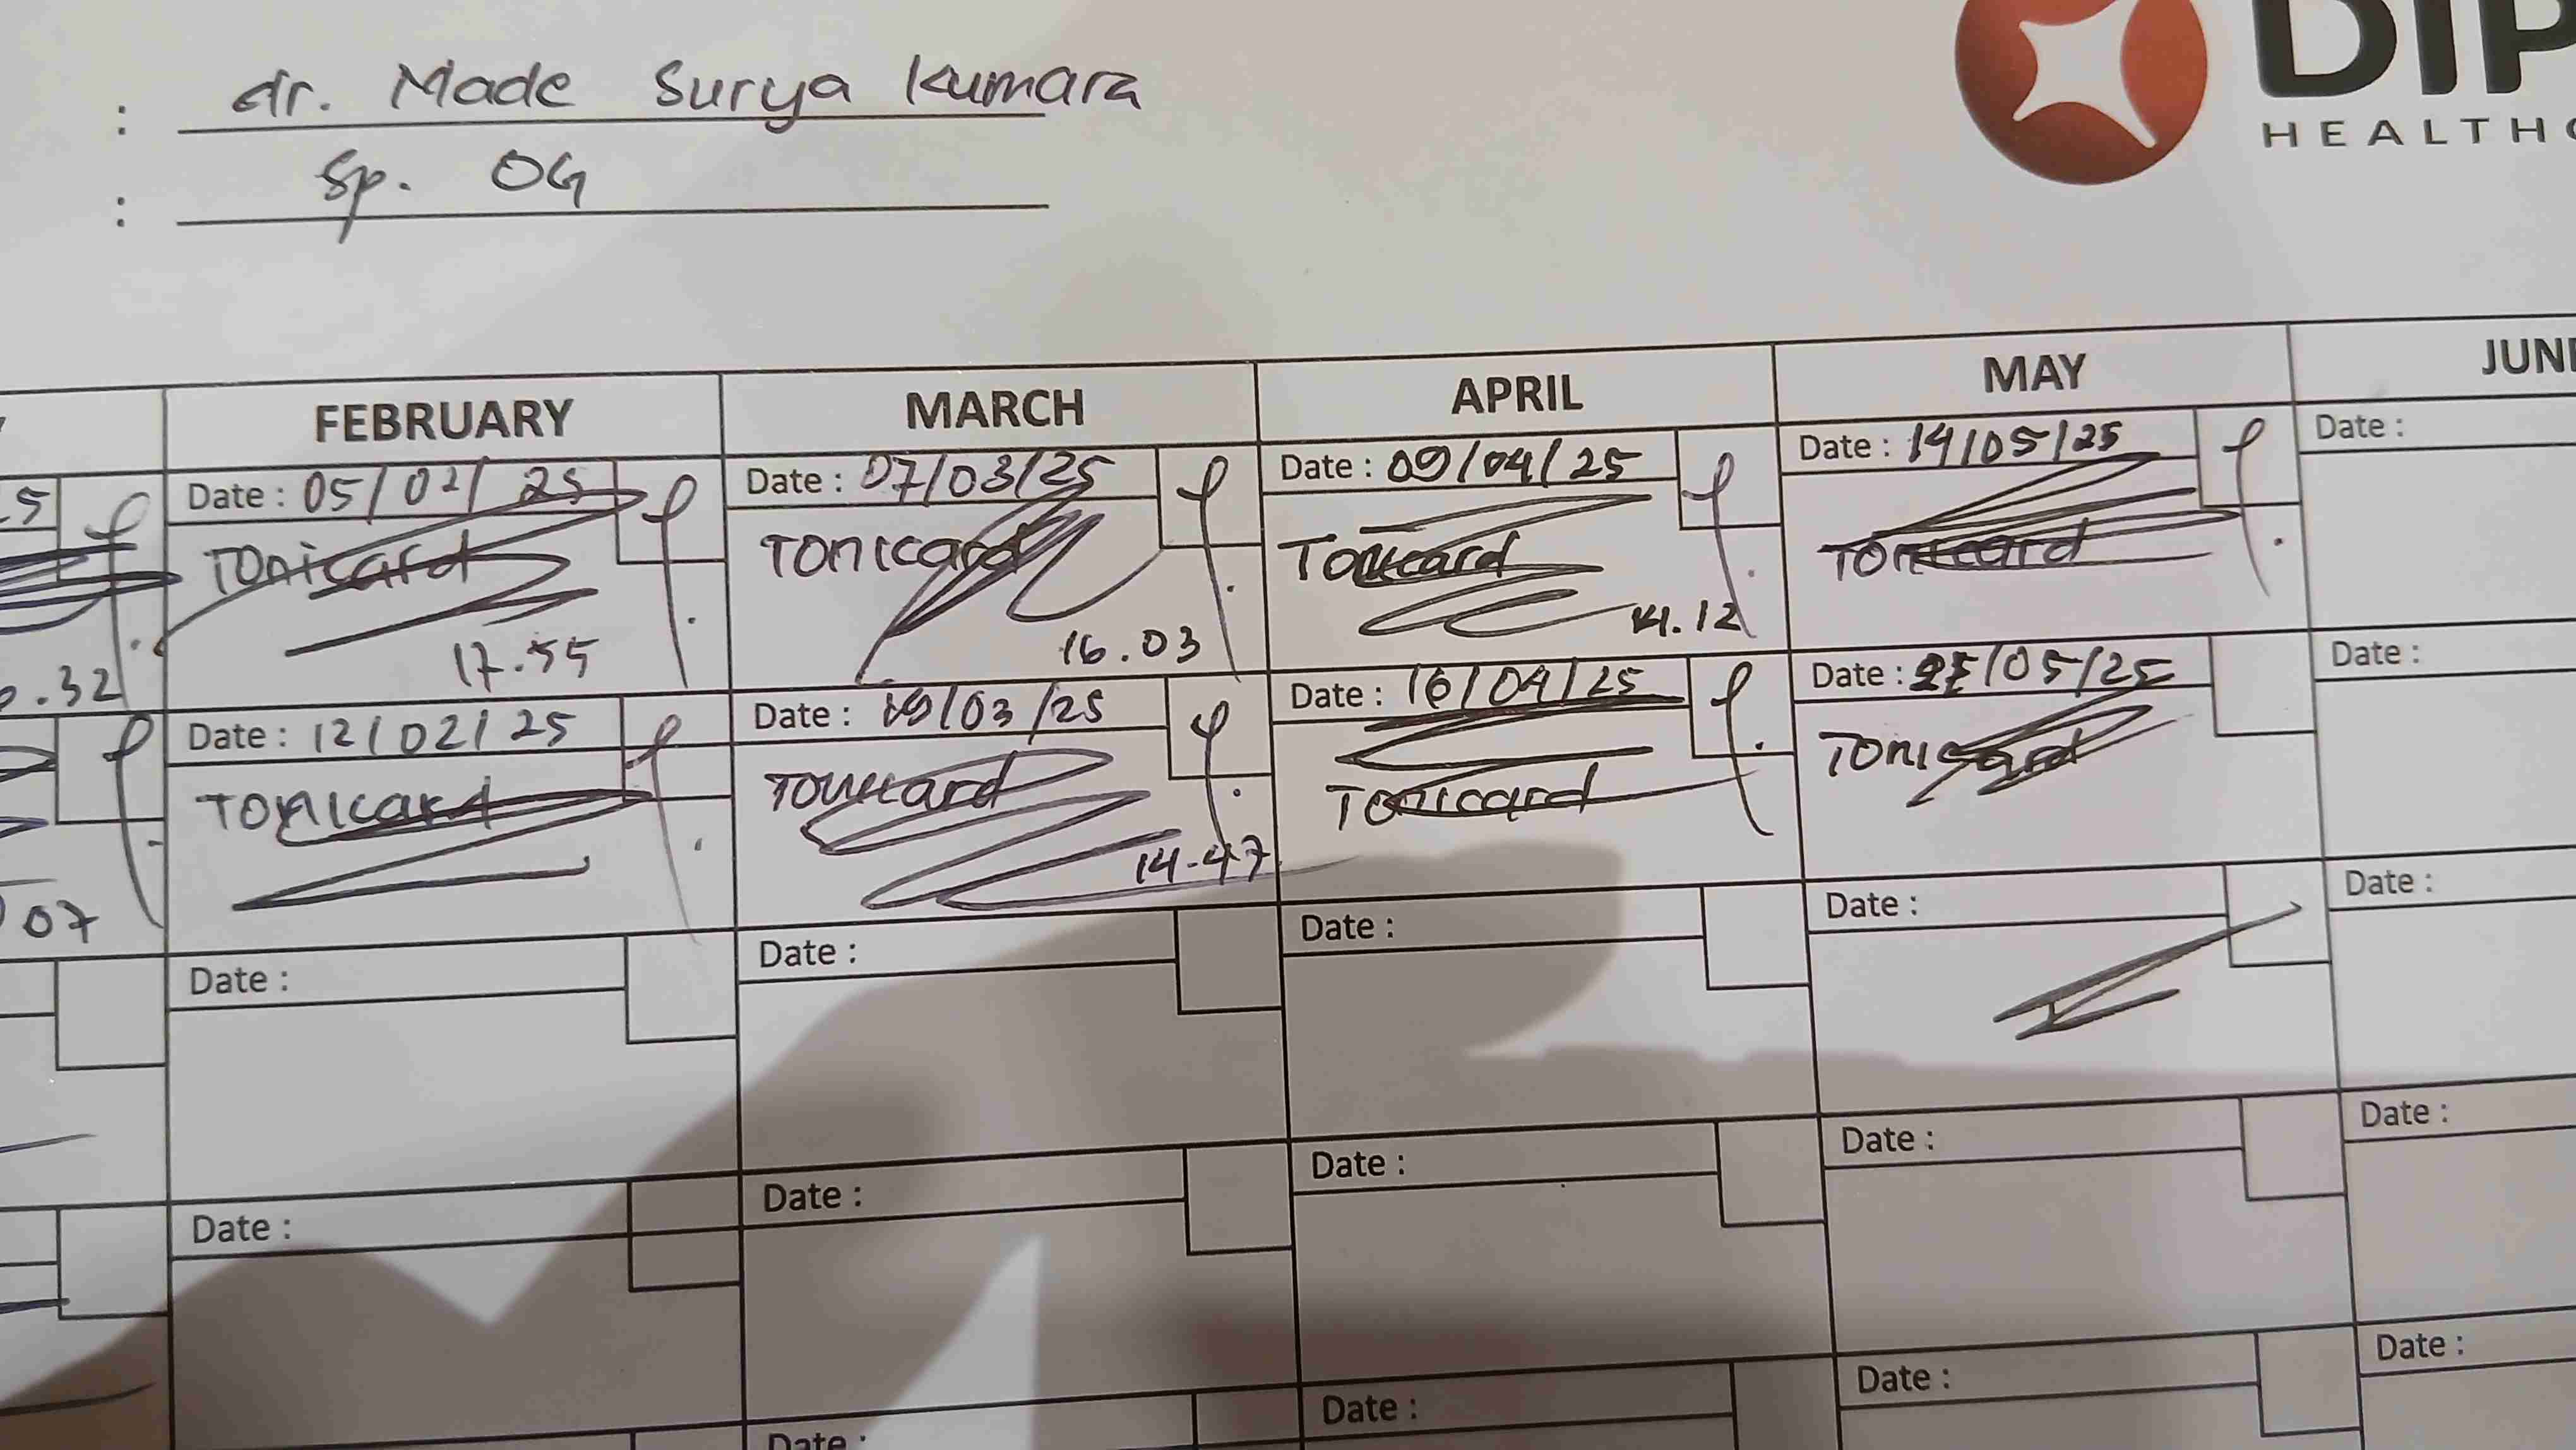 : dr. Made Surya Kumara
: Sp. OG
DIP
HEALTHC
FEBRUARY MARCH APRIL MAY JUN
Date : 05/02/25 Date : 07/03/25 Date : 09/04/25 Date : 14/05/25 Date :
Tonicard Tonicard Tonicard Tonicard
.32 17.55 16.03 14.12
Date : 12/02/25 Date : 19/03/25 Date : 16/04/25 Date : /05/25 Date :
Tonicard Tonicard Tonicard Tonicard
07 14.47
Date : Date : Date : Date : Date :
Date : Date : Date : Date : Date :
Date : Date : Date : Date :